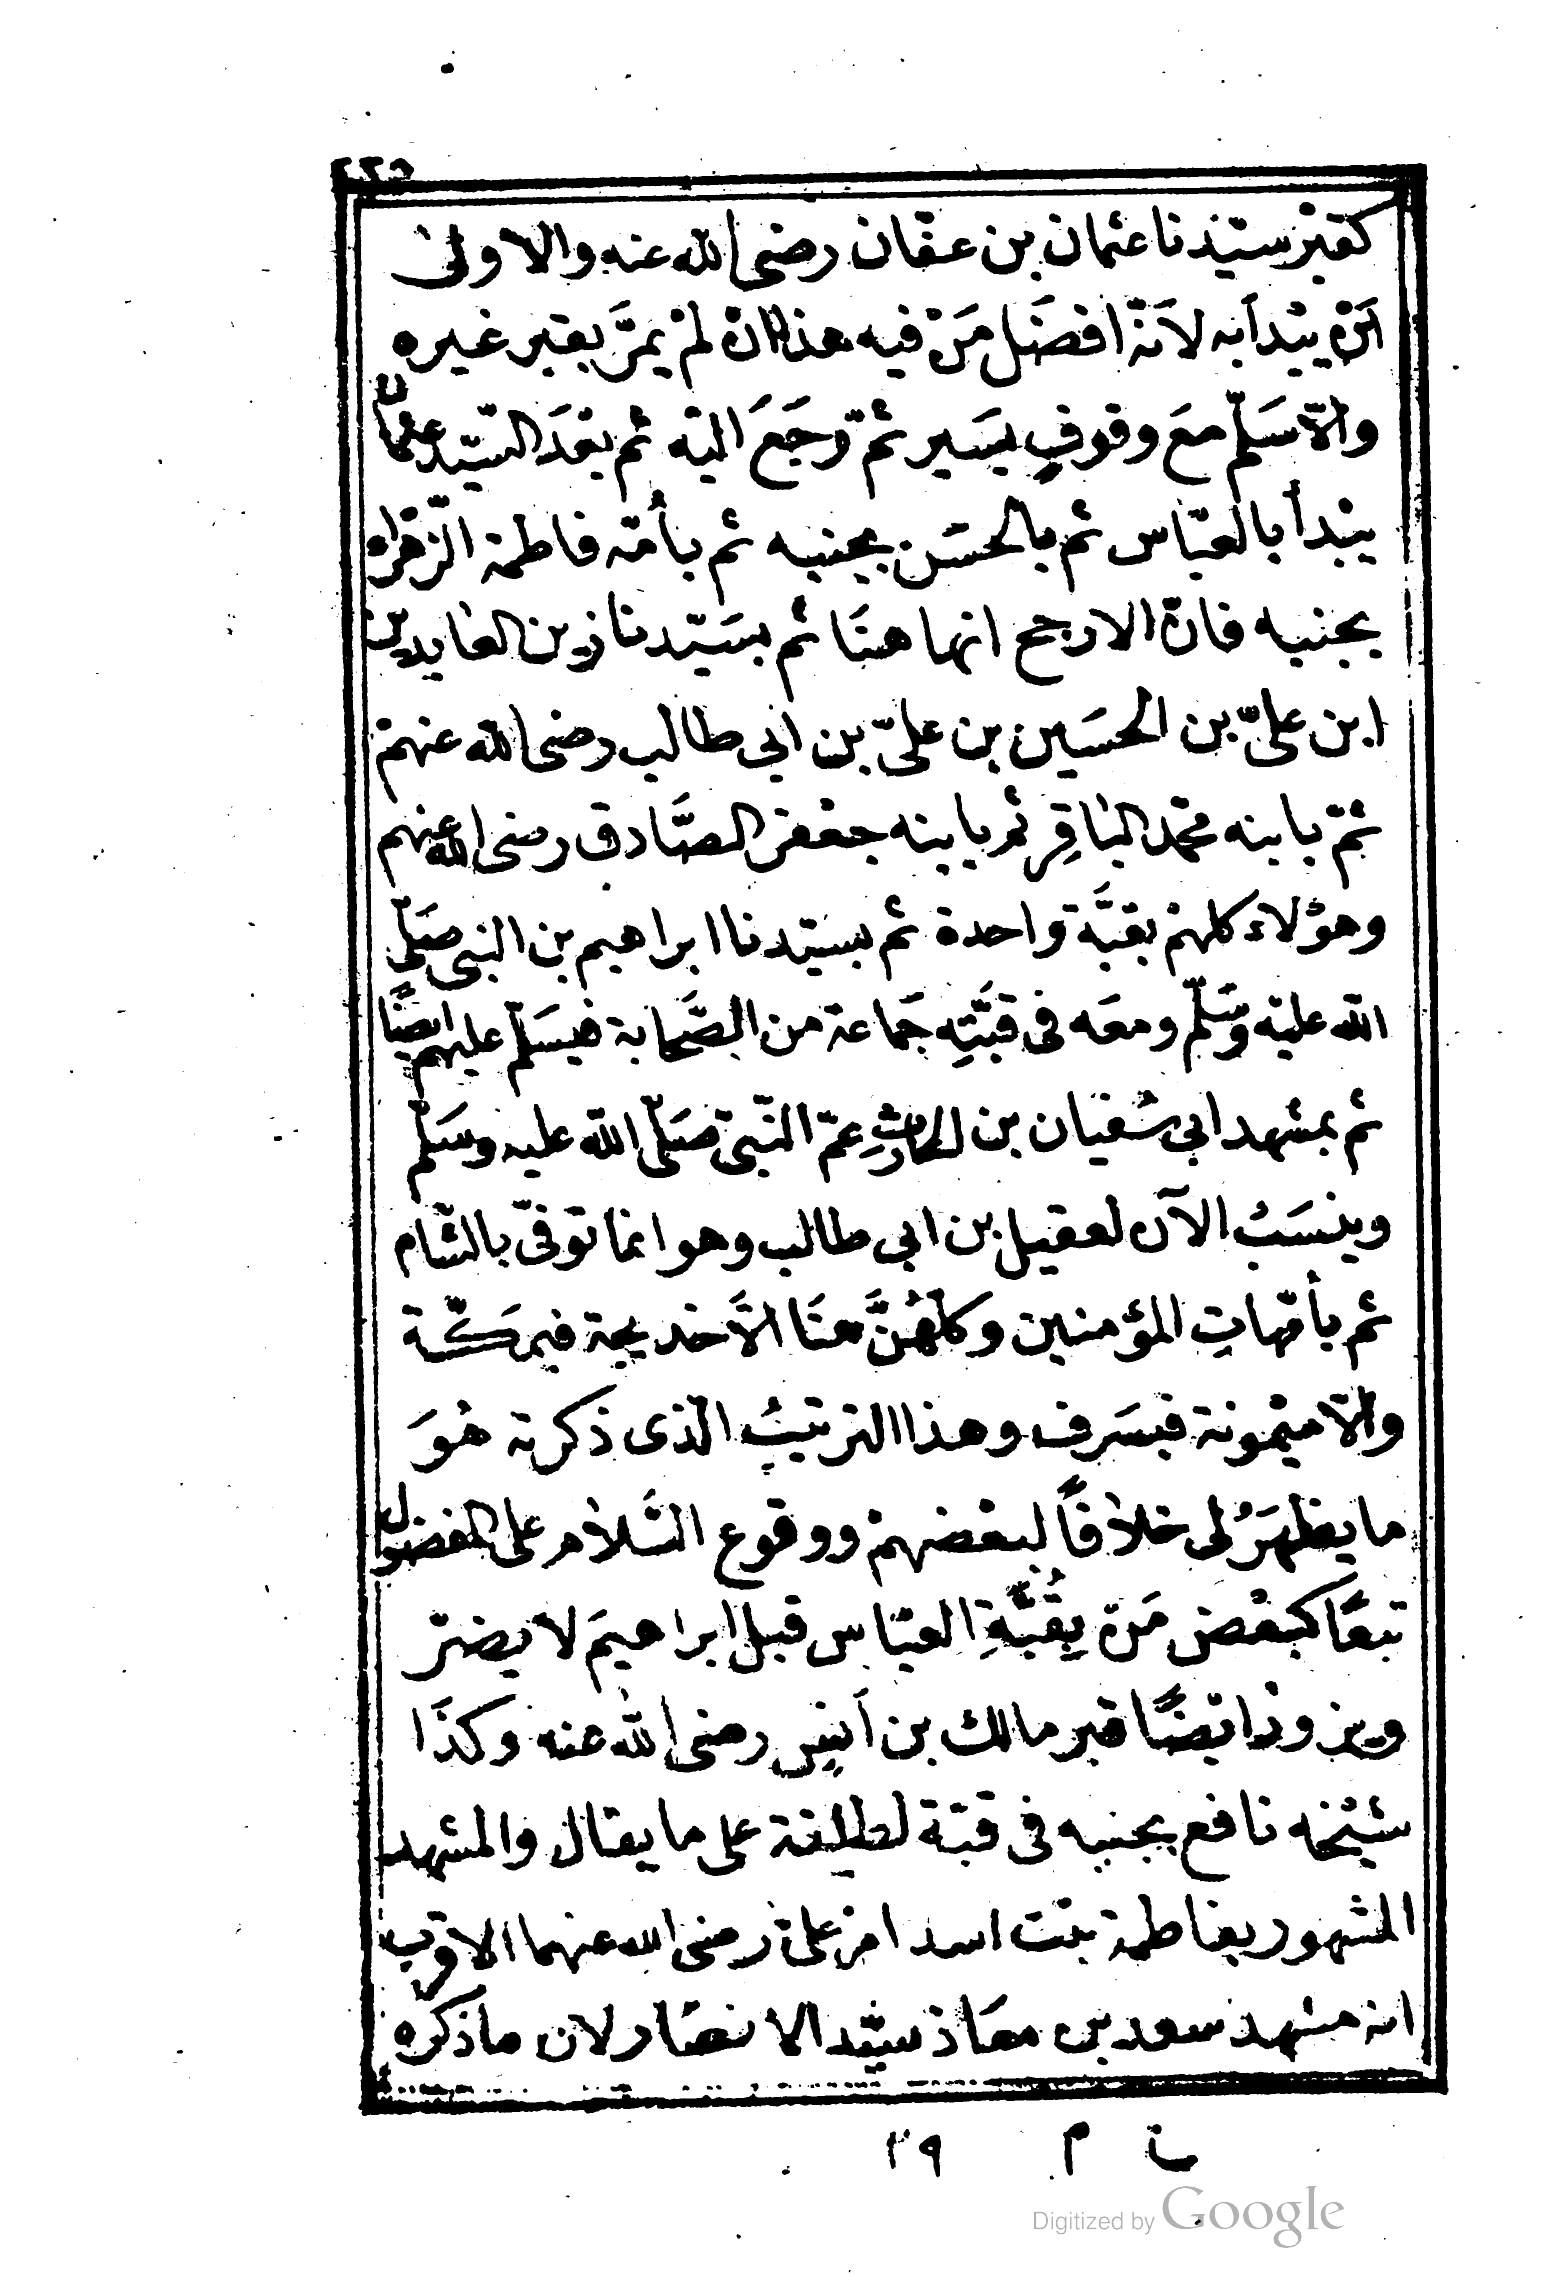 كقبر سيّدنا عثمان بن عفّان رضى الله عنه والاولى
اَنْ يبْدأ به لاَنّه افضَل مَنْ فيه هذا ان لمْ يمَرَّ بقبر غيره
والاّ سَلّم معَ وقوفٍ يسَير ثمّ رجَعَ اليْه ثم بعْدَ السّيّد عثمان
يبْدأ بالعبّاس ثم بالحسَن بجنبه ثم بأمّه فاطمة الزّهراء
بجنبه فانّ الارجح انها هنَا ثم بسَيّدنا زين العابدين
ابن علىّ بن الحسَين بن علىّ بن ابى طالب رضى الله عنهمْ
ثمّ بابنه محمّد البَاقِر ثم بابنه جعْفر الصَّادق رضى الله عنهم
وهؤلاء كلهمْ بقبَّة واحدة ثم بسيّدنا ابراهيم بن النبى صَلّى
الله عليْه وسَلّم ومعَه فى قبَّتِه جَماعة من الصَّحابة فيسَلّم عليهم ايضًا
ثم بمشهد ابى سُفيان بن الحارثِ عمّ النّبىّ صَلّى الله عليه وسَلّم
وينسَبُ الآن لعقيل بن ابى طالب وهو انما توفّى بالشّام
ثم بأمّهاتِ المؤمنين وكلّهُنَّ هنَا الاَّ خديجة فبمَكّة
والاّ ميْمونة فبسَرف وهذا الترتيبُ الّذى ذكرته هُوَ
ما يظهَرُ لى خلافاً لبعْضهمْ ووقوع السَّلام على المفضول
تبعًا كبعْض مَن بِقُبَّةِ العبّاس قبل ابراهيمَ لا يضرّ
ويزوْر ايْضًا قبر مالك بن أنسٍ رضى الله عنه وكذَا
شيْخه نافع بجنبه فى قبّة لطيفة على ما يقال والمشهد
المشهور بفاطمة بنت اسد ام علىّ رضى الله عنهما الاقرب
انه مشهد سعد بن معَاذ سيّد الانصَار لان ما ذكره
ن م ٢٩
Digitized by Google